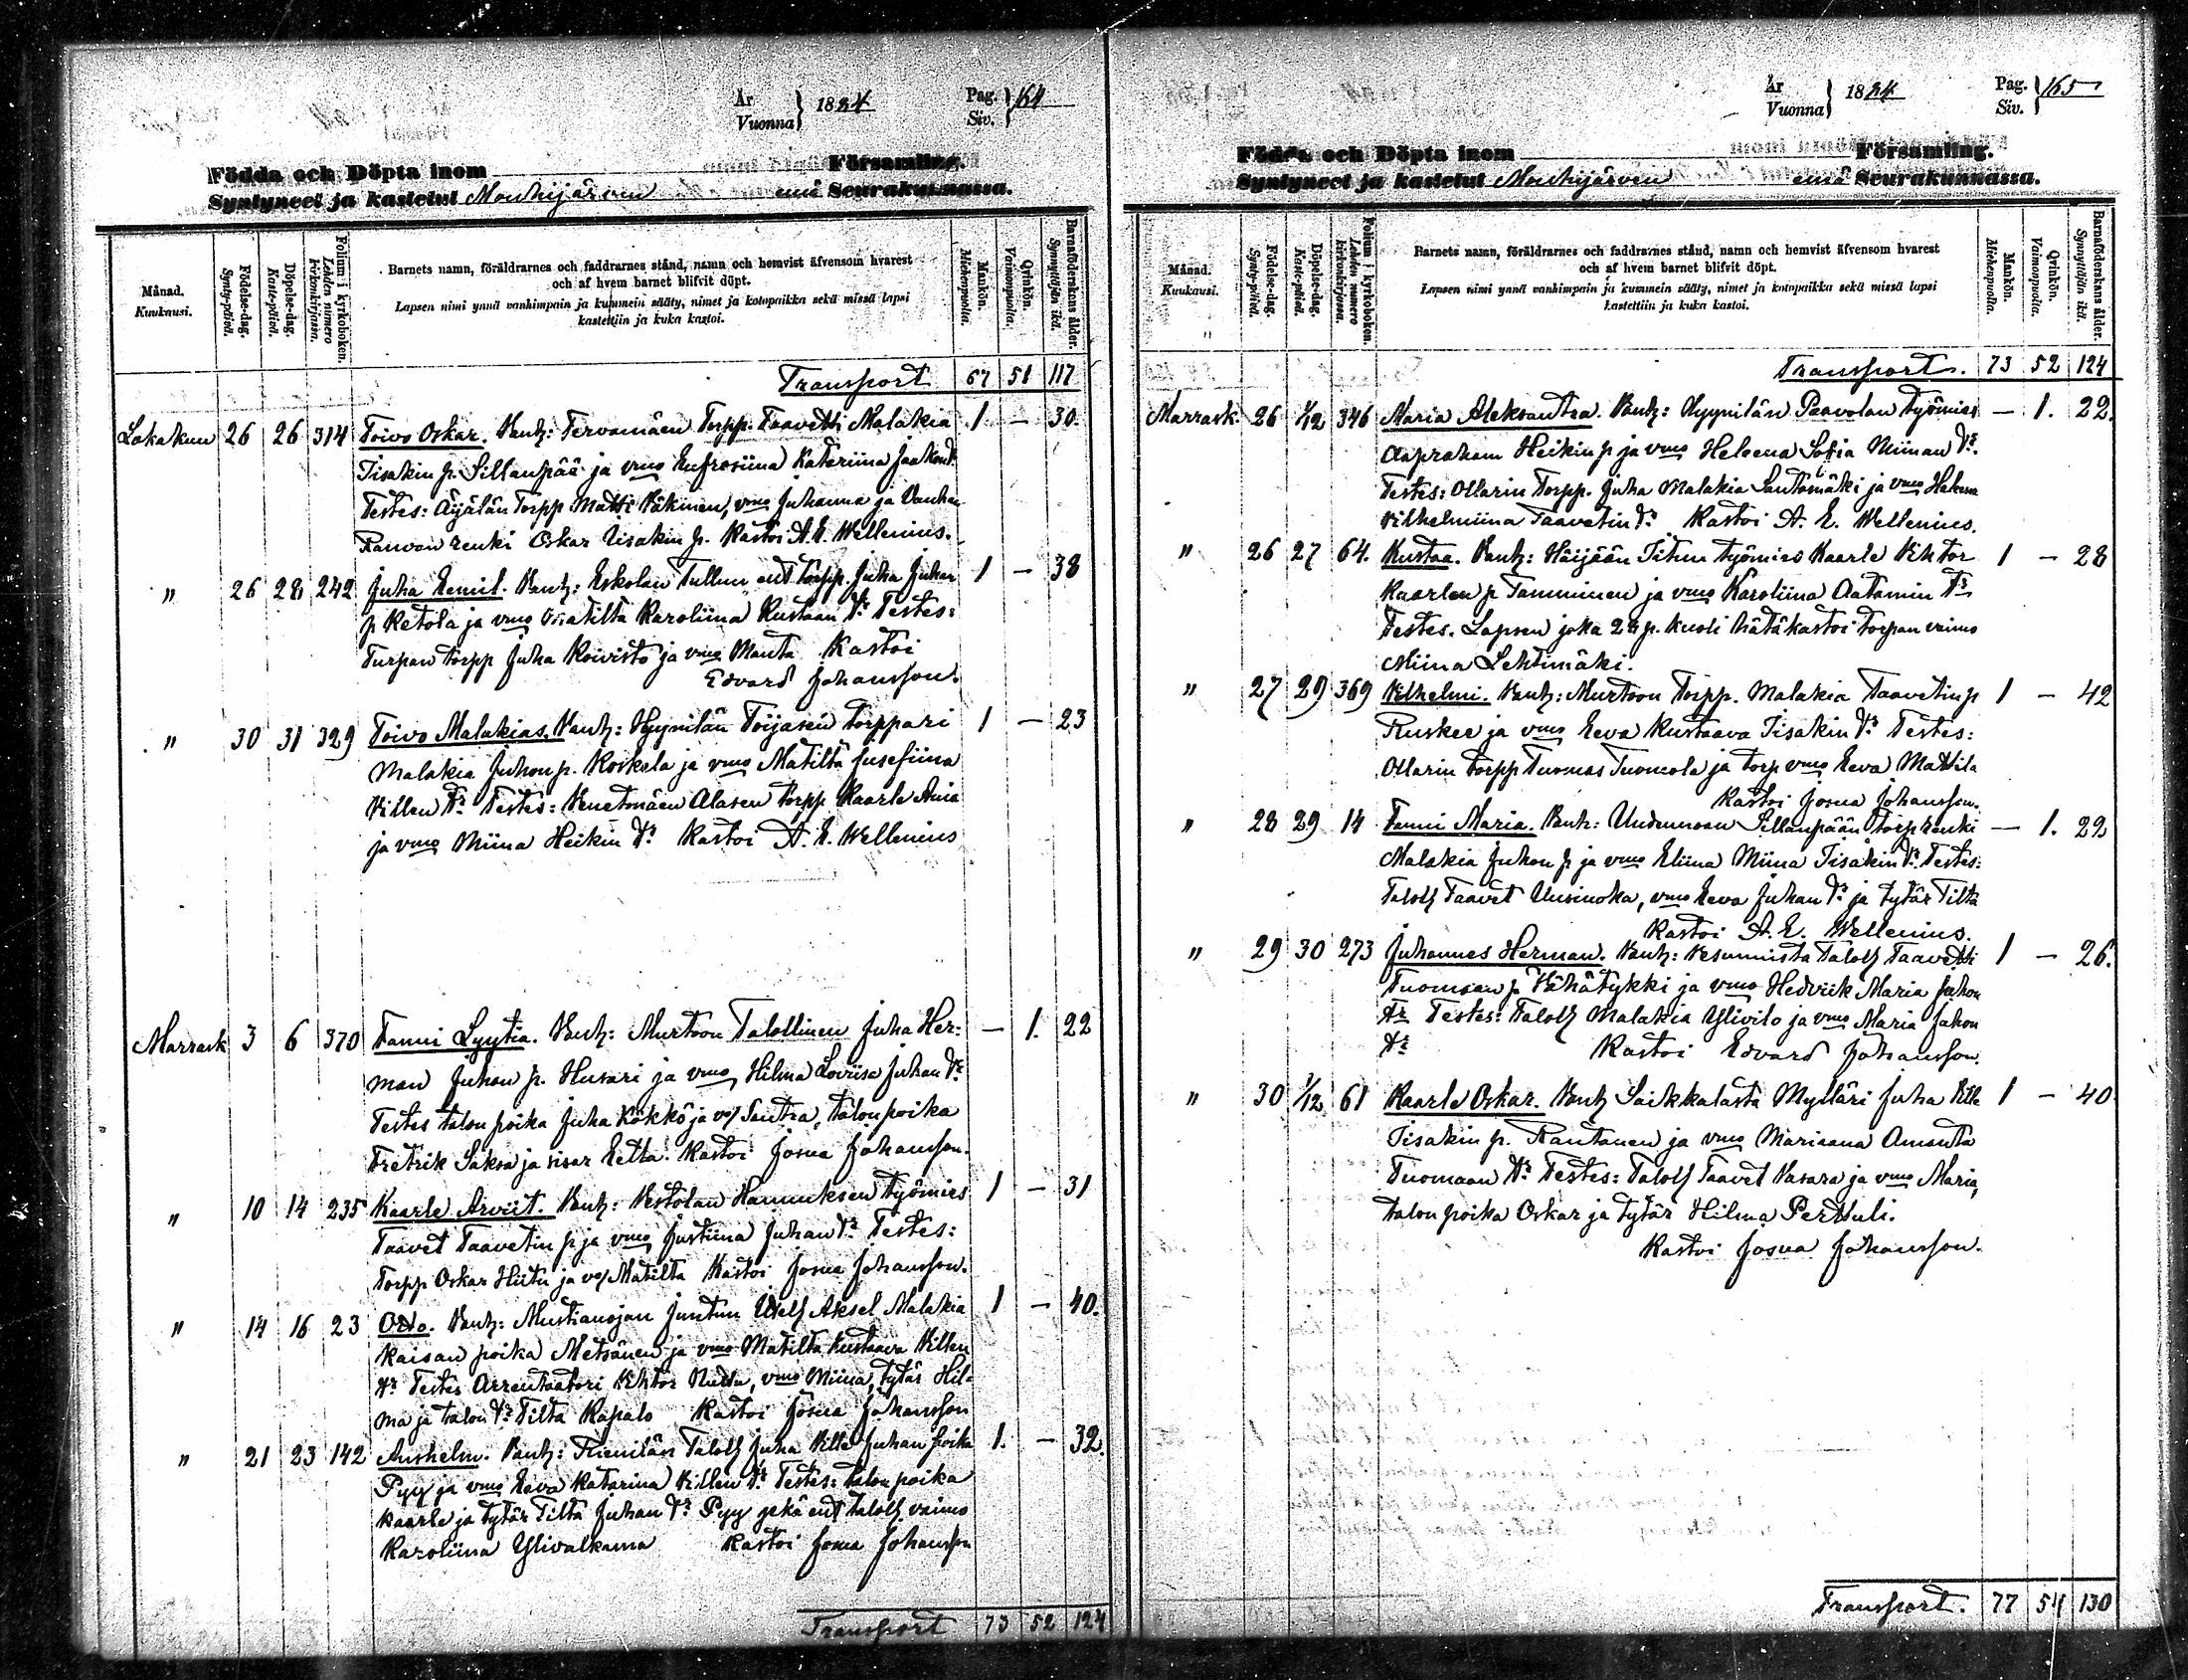 År
Vuonna } 1884
Pag.
Siv. } 164
Födda och Döpta inom Församling.
Syntyneet ja kastetut Mouhijärven emä Seurakunnassa.
Månad.
Kuukausi.
Födelse-dag.
Synty-päivä.
Döpelse-dag.
Kaste-päivä.
Folium i kyrkoboken.
Lehden numero kirkonkirjassa.
Barnets namn, föräldrarnes och faddrarnes stånd, namn och hemvist äfvensom hvarest
och af hvem barnet blifvit döpt.
Lapsen nimi ynnä vanhimpain ja kummein sääty, nimet ja kotopaikka sekä missä lapsi
kastettiin ja kuka kastoi.
Mankön.
Miehenpuolta.
Qvinkön.
Vaimonpuolta.
Barnaföderskans ålder.
Synnyttäjän ikä.
Transport 67 51 117
Lokakuu 26 26 314 Toivo Oskar. Vanh: Tervamäen Torpp. Taavetti Malakia 1 — 30
Iisakin p. Sillanpää ja vmo Eufrosiina Katariina Jaakon tr
Testes: Äijälän Torpp Matti Vähinen, vmo Juhanna ja Vanhan
renki Oskar Iisakin p. Kastoi A. E. Wellenius.
" 26 28 242 Juha Eemil. Vanh: Eskolan Tullun ent torpp. Juha Juhan 1 — 38
p Ketola ja vmo Matilta Karoliina Kustaan tr Testes:
Turpan torpp Juha Koivisto ja vmo Manta Kastoi
Edvard Johansson.
" 30 31 329 Toivo Malakias. Vanh: Hyynilän Toijasen torppari 1 — 23
Malakia Juhon p. Koskela ja vmo Matilta Jusefiina
Villen tr Testes: Alasen torpp Kaarle
ja vmo Miina Heikin tr Kastoi A. E. Wellenius
Marrask 3 6 370 Fanni Lyytia. Vanh: Murtoon Talollinen Juha Her- — 1. 22
man Juhan p. Husari ja vmo Hilma Loviisa Juhan tr
Testes talon poika Juha Kökkö ja vo/ Santra, talon poika
Fretrik Saksa ja sisar Eetla. Kastoi Josua Johansson.
" 10 14 235 Kaarle Arviit. Vanh: Vestolan Hannuksen työmies 1 — 31
Taavet Taavetin p ja vmo Justiina Juhan tr Testes:
Torpp Oskar Hiitu ja vo/ Matilta Kastoi Josua Johansson.
" 14 16 23 Otto. Vanh: Mustianojan Juntun Aksel Malakia 1 — 40.
Kaisan poika Metsänen ja vmo Matilta Kustaava Villen
tr Testes Arrentaatori Vihtor vmo Miina, tytär Hil-
ma ja talon tr Tilta Rapalo Kastoi Josua Johansson
" 21 23 142 Anshelm. Vanh: Rienilän Taloll Juha Ville Juhan poika 1. — 32.
Pyy ja vmo Eeva Katarina Villen tr Testes: talon poika
Kaarle ja tytär Tilta Juhan tr Pyy sekä ent taloll. vaimo
Karoliina Ylivalkama Kastoi Josua Johansson
Transport 73 52 124
År
Vuonna } 1884
Pag.
Siv. } 165
Födda och Döpta inom Församling.
Syntyneet ja kastetut Mouhijärven emä Seurakunnassa.
Månad.
Kuukausi.
Födelse-dag.
Synty-päivä.
Döpelse-dag.
Kaste-päivä.
Folium i kyrkoboken.
Lehden numero kirkonkirjassa.
Barnets namn, föräldrarnes och faddrarnes stånd, namn och hemvist äfvensom hvarest
och af hvem barnet blifvit döpt.
Lapsen nimi ynnä vanhimpain ja kummein sääty, nimet ja kotopaikka sekä missä lapsi
kastettiin ja kuka kastoi.
Mankön.
Miehenpuolta.
Qvinkön.
Vaimonpuolta.
Barnaföderskans ålder.
Synnyttäjän ikä.
Transport. 73 52 124
Marrask. 26 1/12 346 Maria Aleksantra. Vanh: Hyynilän Paavolan työmies — 1. 22
Aapraham Heikin p ja vmo Heleena Sofia Miinan tr.
Testes: Ollarin Torpp. Juha Malakia Santamäki ja vmo Helena
Vilhelmiina Taavetin tr Kastoi A. E. Wellenius.
" 26 27 64. Kustaa. Vanh: Häijään Iitun työmies Kaarle Vihtor 1 — 28
Kaarlen p Tamminen ja vmo Karoliina Aatamin tr
Testes. Lapsen joka 28 p. kuoli hätäkastoi torpan vaimo
Miina Lehtimäki.
" 27 29 369 Vilhelmi. Vanh: Murtoon Torpp. Malakia Taavetin p 1 — 42
Ruskee ja vmo Eeva Kustaava Iisakin tr Testes:
Ollarin torpp Tuomas Tuomola ja torp vmo Eeva Mattila
Kastoi Josua Johansson.
" 28 29 14 Fanni Maria. Vanh: Uudenmaan Sillanpään torp renki — 1. 22
Malakia Juhon p ja vmo Eliina Miina Iisakin tr. Testes:
Taloll Taavet Uusinoka, vmo Eeva Juhan tr ja tytär Tilta
Kastoi A. E. Wellenius.
" 29 30 273 Juhannes Herman. Vanh: Vesunnista Taloll Taavetti 1 — 26.
Tuomaan p Vähätykki ja vmo Hedviik Maria Juhon
tr Testes: Taloll Malakia Ylivilo ja vmo Maria Juhon
tr Kastoi Edvard Johansson.
" 30 1/12 61 Kaarle Oskar. Vanh Saikkalasta Mylläri Juha Ville 1 — 40
Iisakin p. Rautanen ja vmo Mariaana Amanta
Tuomaan tr Testes: Taloll Taavet Vasara ja vmo Maria,
talon poika Oskar ja tytär Hilma Perttuli.
Kastoi Josua Johansson.
Transport. 77 54 130